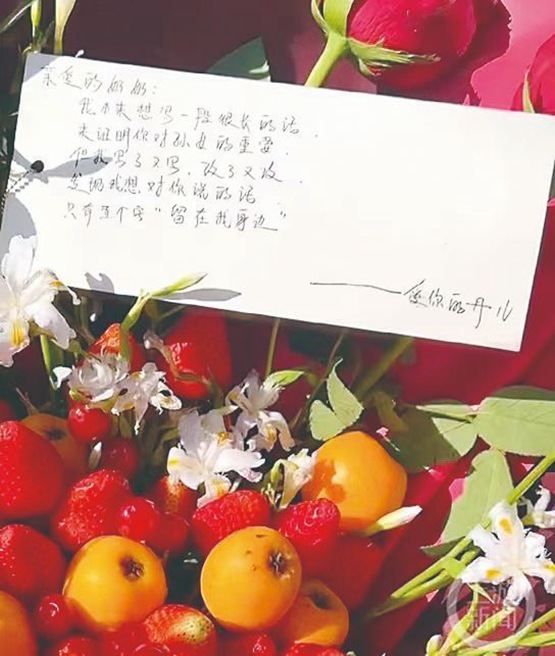 亲爱的奶奶：
我本来想写一段很长的话，
来证明你对孙女的重要，
但我写了又写，改了又改，
发现我想对你说的话
只有五个字“留在我身边”
——爱你的丹儿
上游
新闻